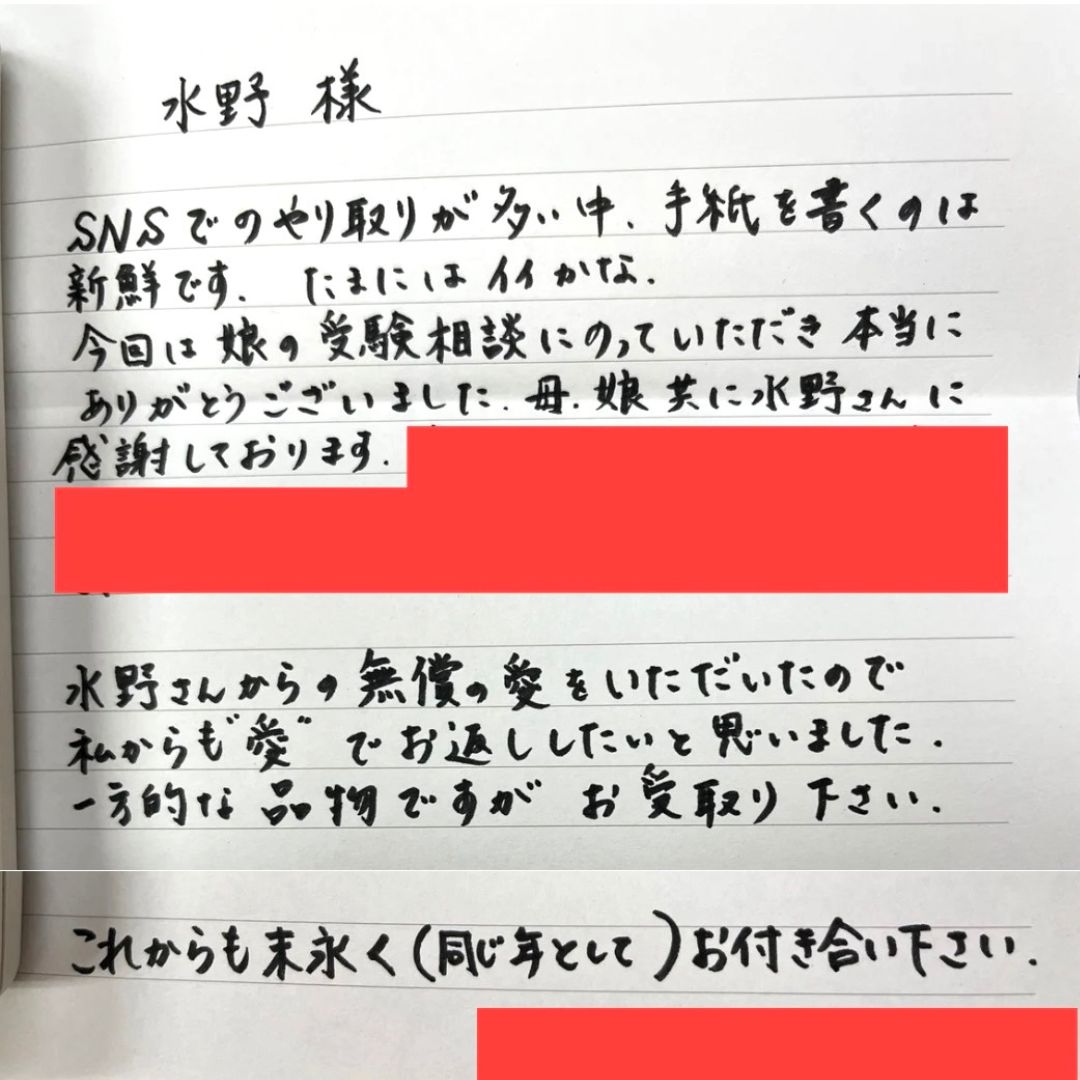 水野 様
SNSでのやり取りが多い中、手紙を書くのは
新鮮です. たまにはイイかな.
今回は娘の受験相談にのっていただき本当に
ありがとうございました. 母、娘共に水野さんに
感謝しております.
水野さんからの無償の愛をいただいたので
私からも"愛"でお返ししたいと思いました.
一方的な品物ですがお受取り下さい.
これからも末永く(同じ年として)お付き合い下さい.